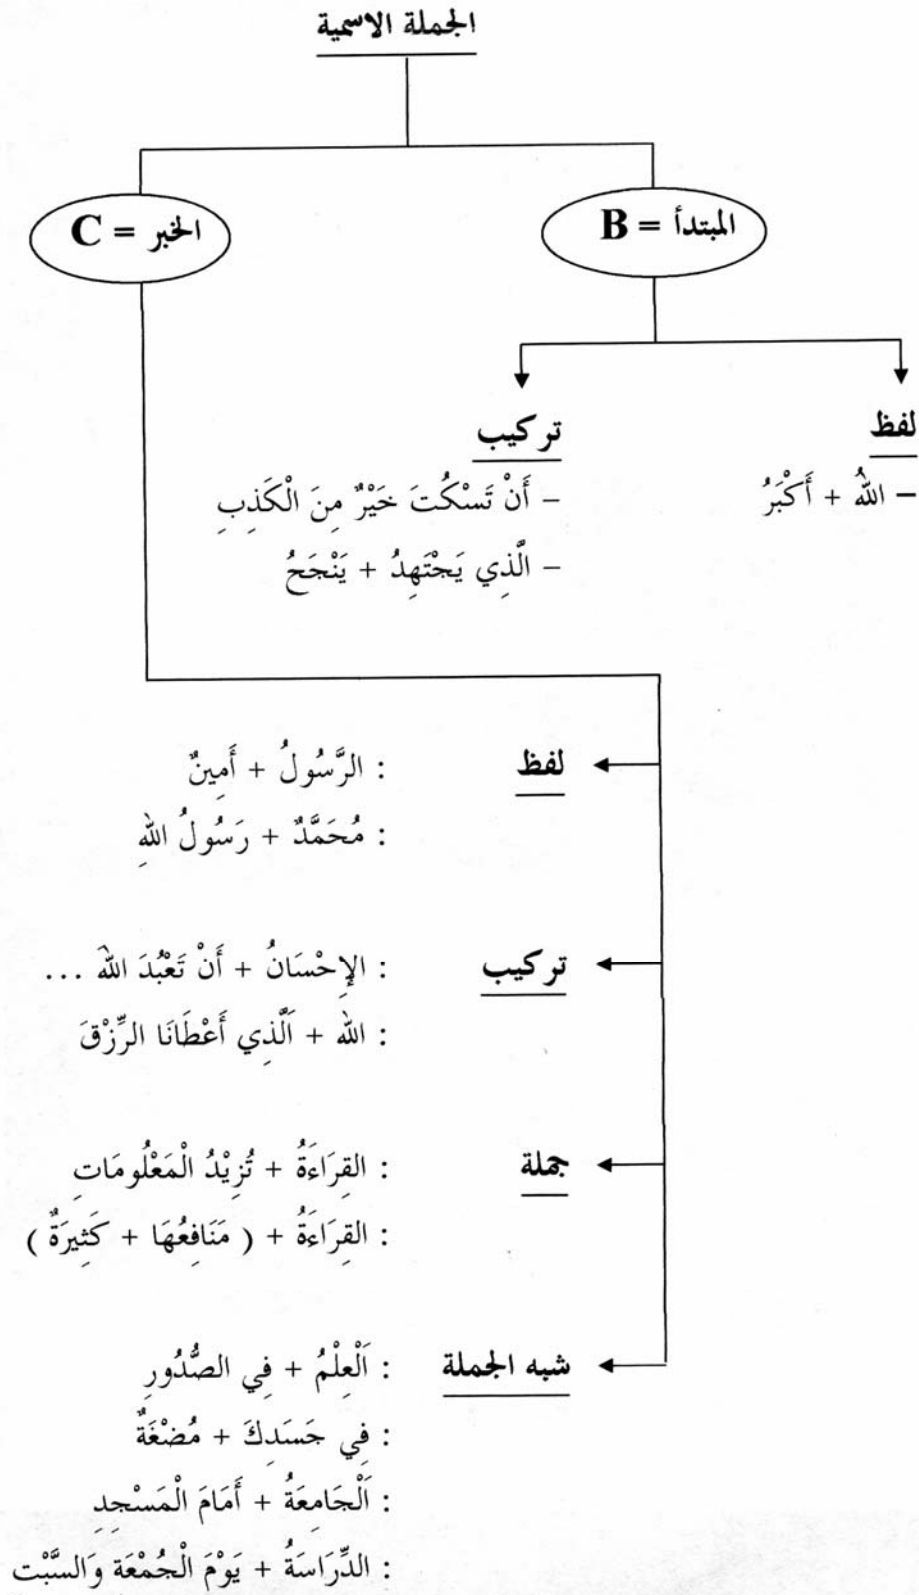 الجملة الاسمية
المبتدأ = B
الخبر = C
لفظ
– اللهُ + أَكْبَرُ
تركيب
– أَنْ تَسْكُتَ خَيْرٌ مِنَ الْكَذِبِ
– الَّذِي يَجْتَهِدُ + يَنْجَحُ
لفظ : الرَّسُولُ + أَمِينٌ
: مُحَمَّدٌ + رَسُولُ اللهِ
تركيب : الإِحْسَانُ + أَنْ تَعْبُدَ اللهَ ...
: الله + اَلَّذِي أَعْطَانَا الرِّزْقَ
جملة : القِرَاءَةُ + تُزِيْدُ الْمَعْلُومَاتِ
: القِرَاءَةُ + ( مَنَافِعُهَا + كَثِيرَةٌ )
شبه الجملة : اَلْعِلْمُ + فِي الصُّدُورِ
: فِي جَسَدِكَ + مُضْغَةٌ
: اَلْجَامِعَةُ + أَمَامَ الْمَسْجِدِ
: الدِّرَاسَةُ + يَوْمَ الْجُمْعَة وَالسَّبْت